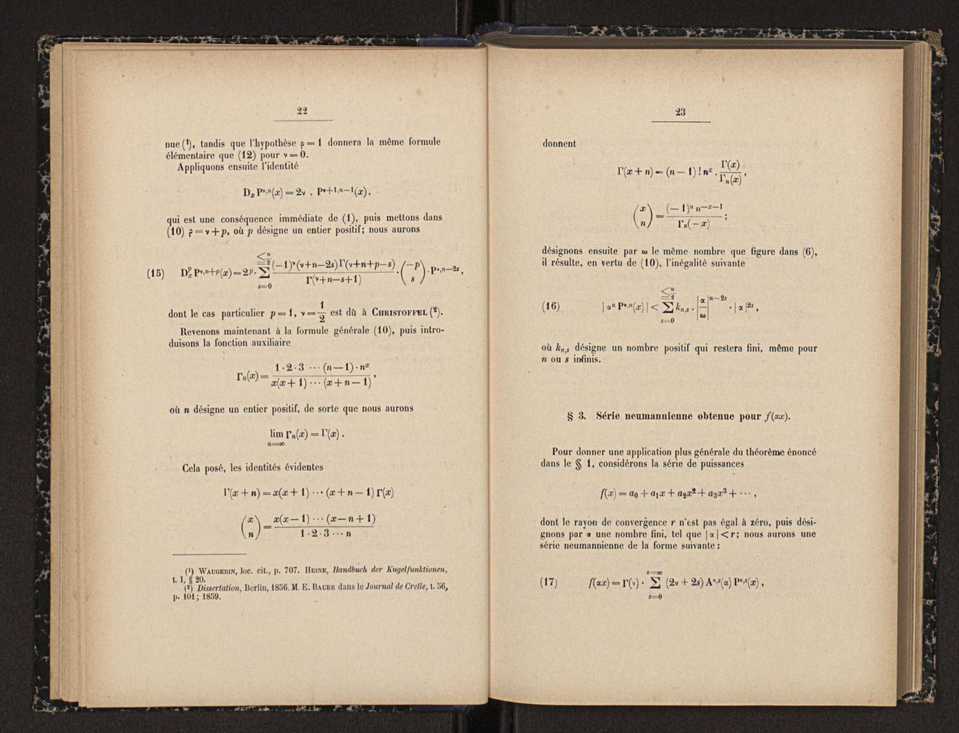 22
nue (¹), tandis que l'hypothèse ρ = 1 donnera la même formule
élémentaire que (12) pour ν = 0.
Appliquons ensuite l'identité
D_x P^{ν,n}(x) = 2ν . P^{ν+1,n−1}(x),
qui est une conséquence immédiate de (1), puis mettons dans
(10) ρ = ν + p, où p désigne un entier positif; nous aurons
(15) D_x^p P^{ν,n+p}(x) = 2^p · Σ_{s=0}^{≤ n/2} (−1)^s (ν+n−2s) Γ(ν+n+p−s) / Γ(ν+n−s+1) · (−p s) · P^{ν,n−2s},
dont le cas particulier p = 1, ν = 1/2 est dû à CHRISTOFFEL (²).
Revenons maintenant à la formule générale (10), puis intro-
duisons la fonction auxiliaire
Γ_n(x) = 1·2·3 ··· (n−1)·n^x / x(x+1) ··· (x+n−1),
où n désigne un entier positif, de sorte que nous aurons
lim_{n=∞} Γ_n(x) = Γ(x).
Cela posé, les identités évidentes
Γ(x+n) = x(x+1) ··· (x+n−1) Γ(x)
(x n) = x(x−1) ··· (x−n+1) / 1·2·3 ··· n
(¹) WAUGERIN, loc. cit., p. 707. HEINE, Handbuch der Kugelfunktionen,
t. 1, § 20.
(²) Dissertation, Berlin, 1856. M. E. BAUER dans le Journal de Crelle, t. 56,
p. 101; 1859.
23
donnent
Γ(x+n) = (n−1)! n^x · Γ(x) / Γ_n(x),
(x n) = (−1)^n n^{−x−1} / Γ_n(−x);
désignons ensuite par ω le même nombre que figure dans (6),
il résulte, en vertu de (10), l'inégalité suivante
(16) |α^n P^{ν,n}(x)| < Σ_{s=0}^{≤ n/2} k_{n,s} · |α/ω|^{n−2s} · |α|^{2s},
où k_{n,s} désigne un nombre positif qui restera fini, même pour
n ou s infinis.
§ 3. Série neumannienne obtenue pour f(αx).
Pour donner une application plus générale du théorème énoncé
dans le § 1, considérons la série de puissances
f(x) = a₀ + a₁x + a₂x² + a₃x³ + ··· ,
dont le rayon de convergence r n'est pas égal à zéro, puis dési-
gnons par α une nombre fini, tel que |α| < r; nous aurons une
série neumannienne de la forme suivante :
(17) f(αx) = Γ(ν) · Σ_{s=0}^{s=∞} (2ν + 2s) A^{ν,s}(α) P^{ν,s}(x) ,